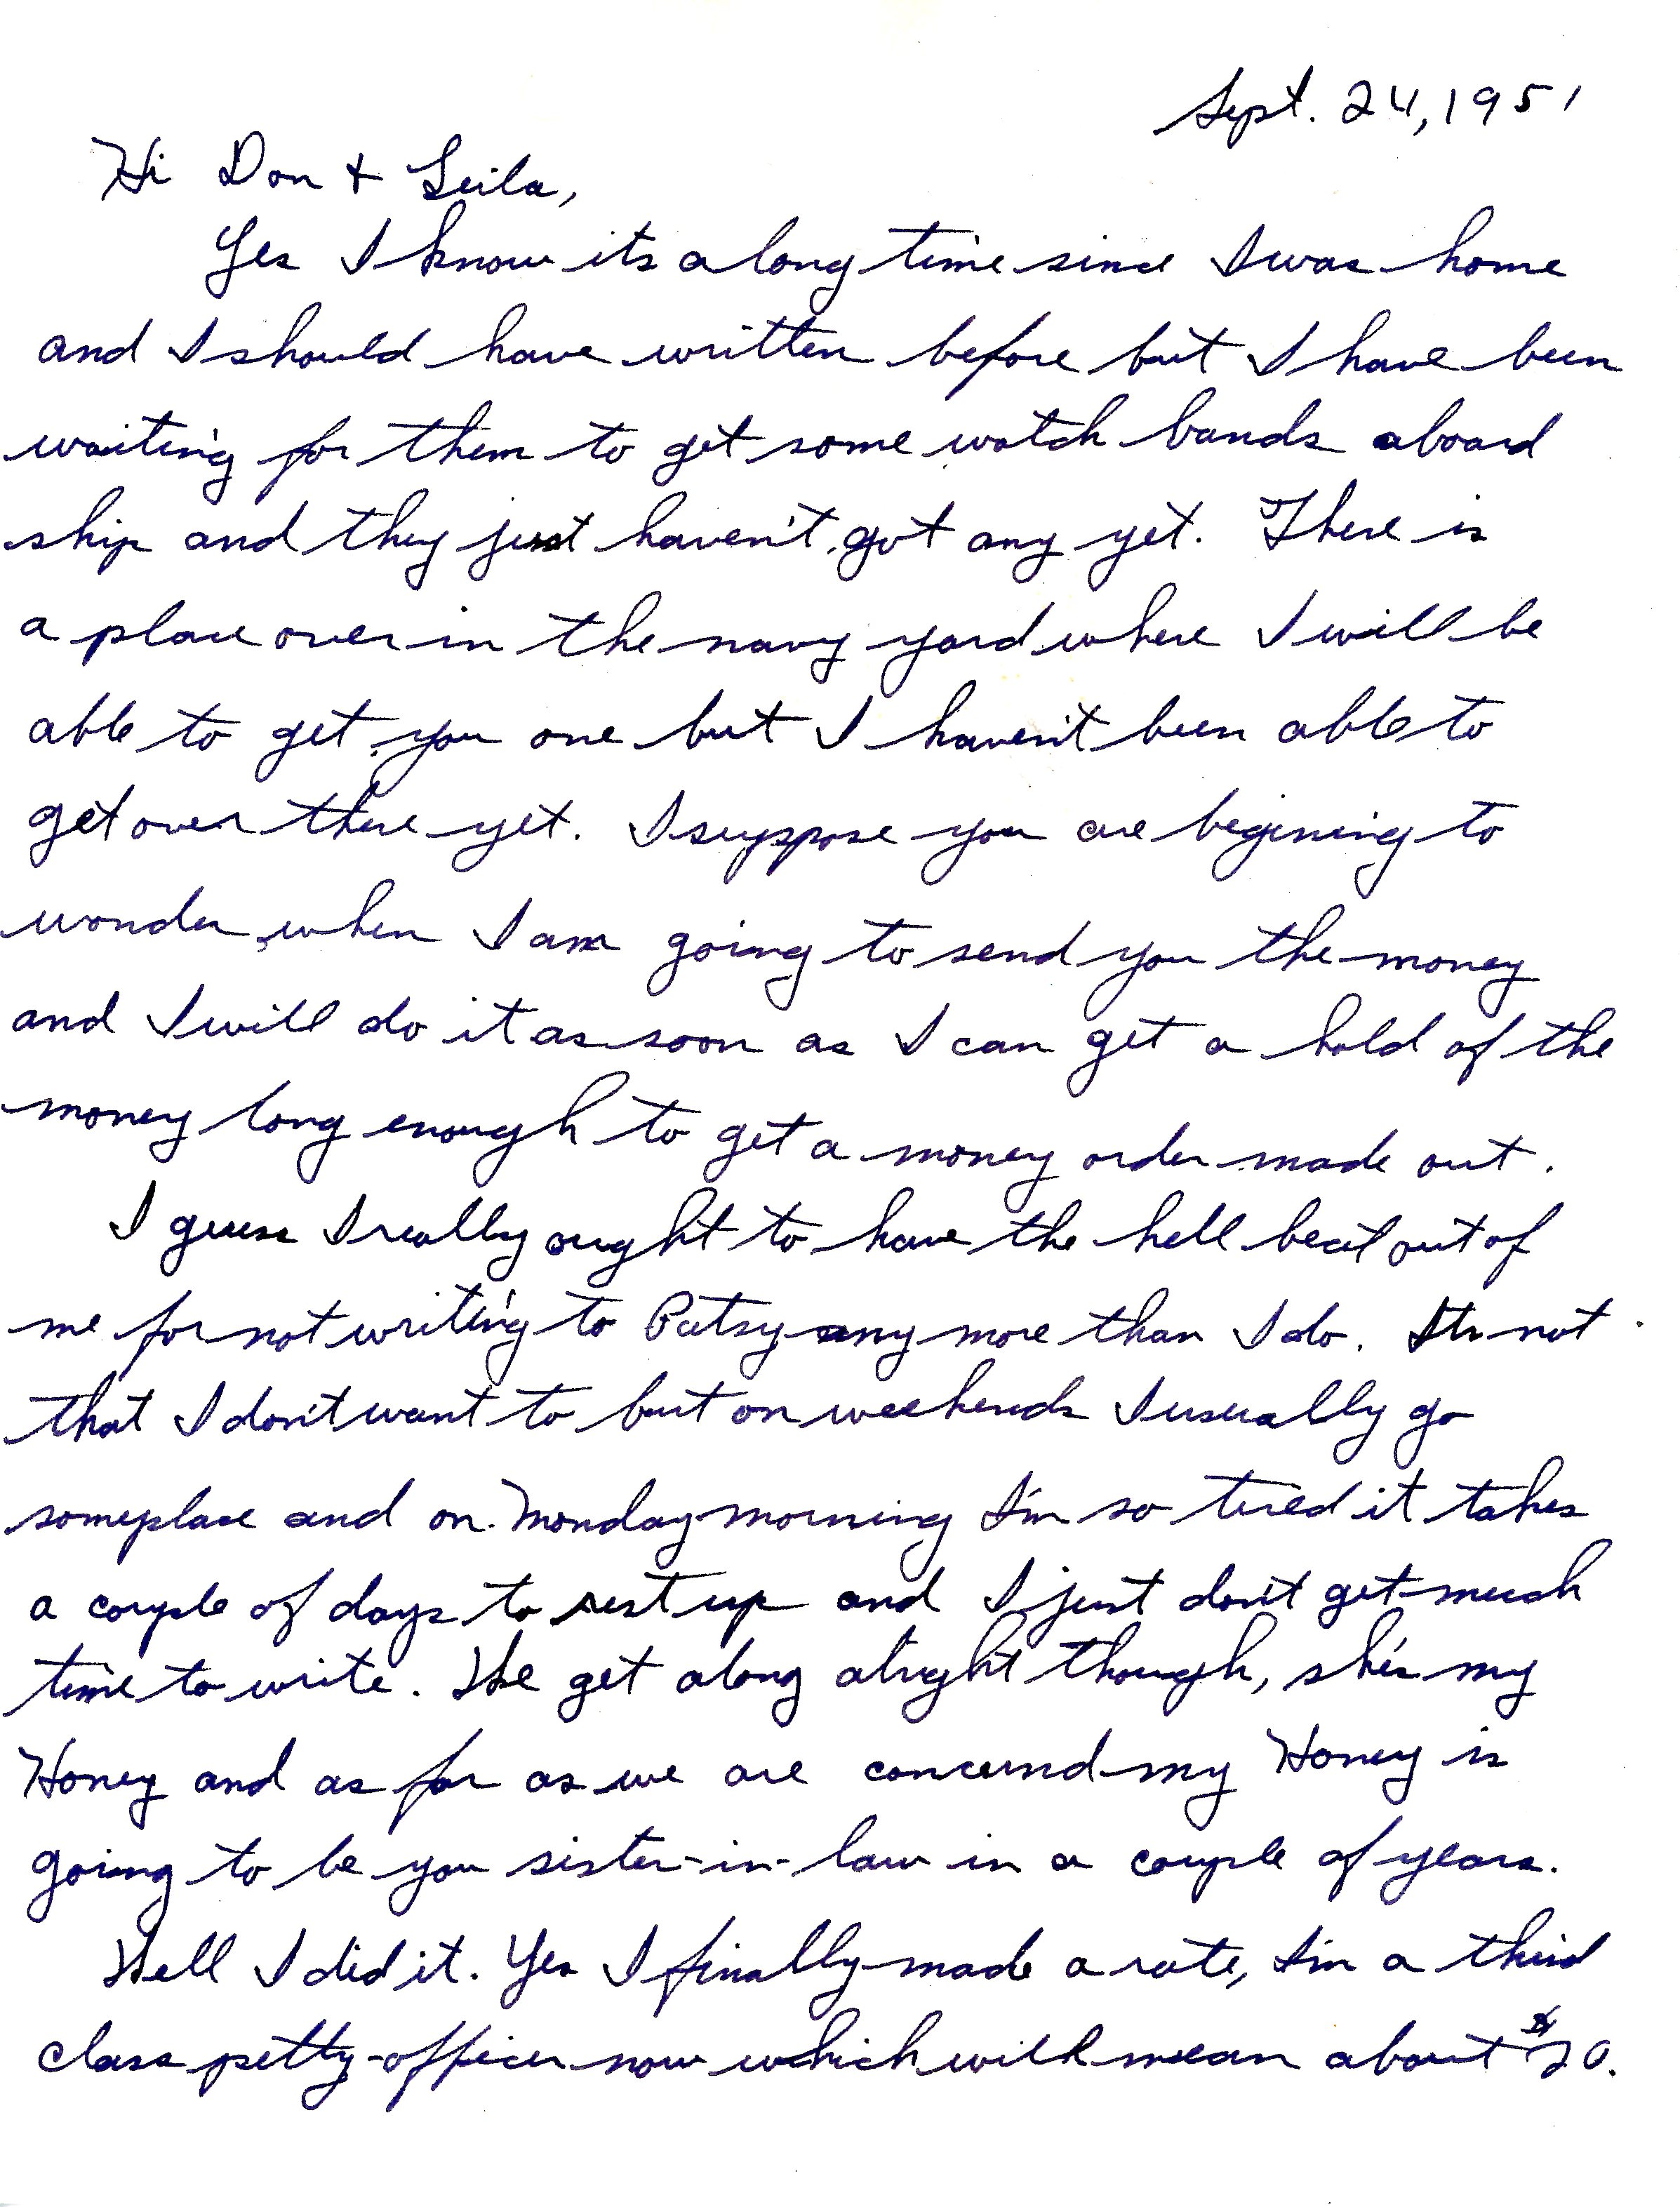 Sept. 24, 1951
Hi Don + Leila,
Yes I know its a long time since I was home
and I should have written before but I have been
waiting for them to get some watch bands aboard
ship and they just haven't got any yet. There is
a place over in the navy yard where I will be
able to get you one but I haven't been able to
get over there yet. I suppose you are begining to
wonder when I am going to send you the money
and I will do it as soon as I can get a hold of the
money long enough to get a money order made out.
I guess I really ought to have the hell beat out of
me for not writing to Patsy any more than I do. Its not
that I don't want to but on weekends I usually go
someplace and on Monday morning I'm so tired it takes
a couple of days to rest up and I just don't get much
time to write. We get along alright though, she's my
Honey and as far as we are concernd my Honey is
going to be you sister-in-law in a couple of years.
Well I did it. Yes I finally made a rate, I'm a third
class petty-officer now which will mean about $20.